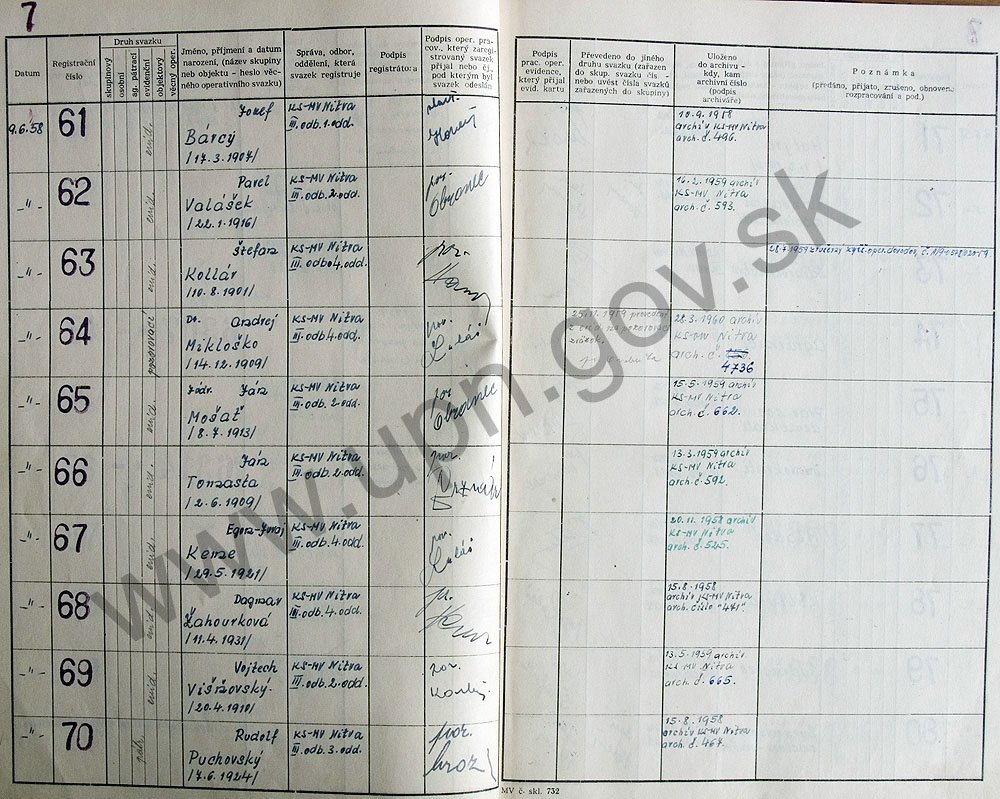 7
Datum
Registrační číslo
Druh svazku
skupinový
osobní
ag. pátrací
evidenční
objektový
věcný oper.
Jméno, příjmení a datum
narození, (název skupiny
neb objektu - heslo věc-
ného operativního svazku)
Správa, odbor,
oddělení, která
svazek registruje
Podpis
registrátora
Podpis oper. pra-
cov., který zaregi-
strovaný svazek
přijal nebo čj.,
pod kterým byl
svazek odeslán
Podpis
prac. oper.
evidence,
který přijal
evid. kartu
Převedeno do jiného
druhu svazku (zařazen
do skup. svazku čís. -
nebo uvést čísla svazků
zařazených do skupiny)
Uloženo
do archivu -
kdy, kam
archivní číslo
(podpis
archiváře)
Poznámka
(předáno, přijato, zrušeno, obnoveno,
rozpracování a pod.)
9.6.58
61
evid.
Jozef
Bárcy
/17.3.1907/
KS-MV Nitra
III.odb.1.odd.
10.9.1958
archív KS-MV Nitra
arch. č. 496.
-"-
62
evid.
Pavel
Valášek
/22.1.1916/
KS-MV Nitra
III.odb.2.odd.
por.
Obranec
16.2.1959 archív
KS-MV Nitra
arch. č. 593.
-"-
63
evid.
Štefan
Kollár
/10.8.1901/
KS-MV Nitra
III.odb.4.odd.
por.
-"-
64
pozorovací
Dr. Andrej
Mikloško
/14.12.1909/
KS-MV Nitra
III.odb.4.odd.
por.
Lukáš
25.11.1959 prevedený
z evid. na pozorovací
zväzok.
28.3.1960 archív
KS-MV Nitra
arch. č.
4736
-"-
65
evid.
Ján
Mošať
/8.7.1913/
KS-MV Nitra
III.odb.2.odd.
por.
Obranec
15.5.1959 archív
KS-MV Nitra
arch. č. 662.
-"-
66
evid.
Ján
Tomašta
/2.6.1909/
KS-MV Nitra
III.odb.2.odd.
por.
13.3.1959 archív
KS-MV Nitra
arch. č. 592.
-"-
67
evid.
Egon-Juraj
Keme
/29.5.1921/
KS-MV Nitra
III.odb.4.odd.
por.
Lukáš
20.11.1958 archív
KS-MV Nitra
arch. č. 525.
-"-
68
evid.
Dagmar
Žahourková
/11.4.1931/
KS-MV Nitra
III.odb.4.odd.
15.8.1958
archív KS-MV Nitra
arch. číslo "471"
-"-
69
evid.
Vojtech
Višňovský
/20.4.1910/
KS-MV Nitra
III.odb.2.odd.
por.
13.5.1959 archív
KS-MV Nitra
arch. č. 665.
-"-
70
pátr.
Rudolf
Puchovský
/7.6.1924/
KS-MV Nitra
III.odb.3.odd.
por.
15.8.1958
archív KS-MV Nitra
arch. č. 467.
MV č. skl. 732
www.upn.gov.sk